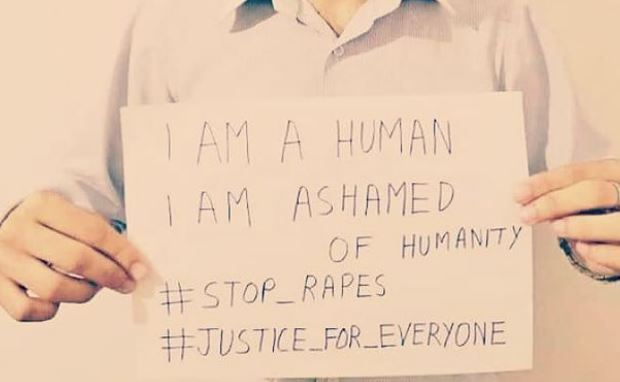 I AM A HUMAN
I AM ASHAMED
OF HUMANITY
#STOP_RAPES
#JUSTICE_FOR_EVERYONE